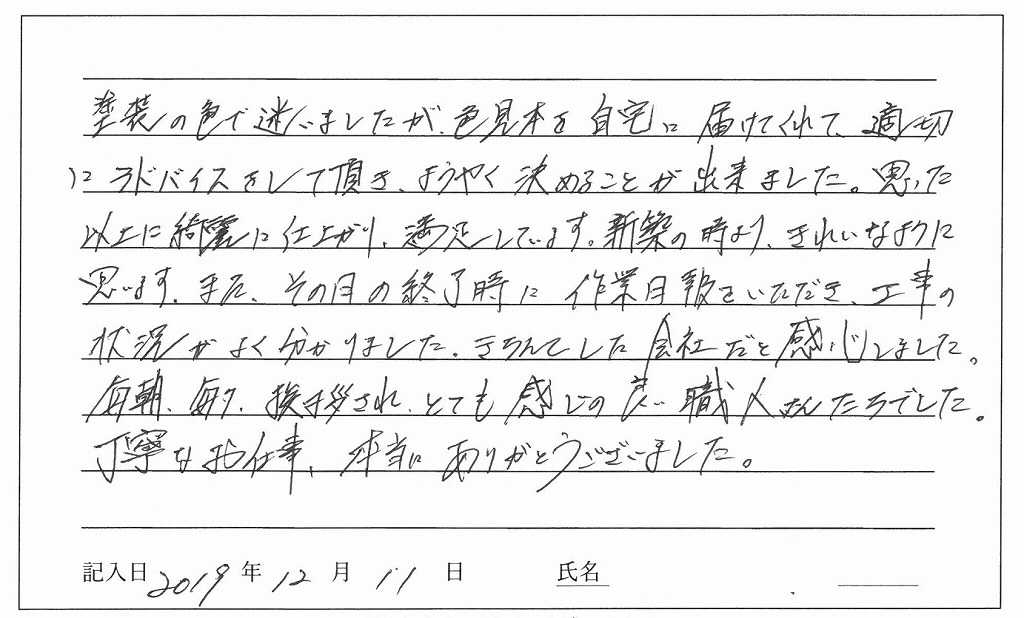 塗装の色で迷いましたが、色見本を自宅に届けてくれて、適切
にアドバイスをして頂き、ようやく決めることが出来ました。思った
以上に綺麗に仕上がり、満足しています。新築の時より、きれいなように
思います。また、その日の終了時に作業日報をいただき、工事の
状況がよく分かりました。きちんとした会社だと感じしました。
毎朝、毎夕、挨拶され、とても感じの良い職人さんたちでした。
丁寧なお仕事、本当にありがとうございました。
記入日 2019 年 12 月 11 日 氏名